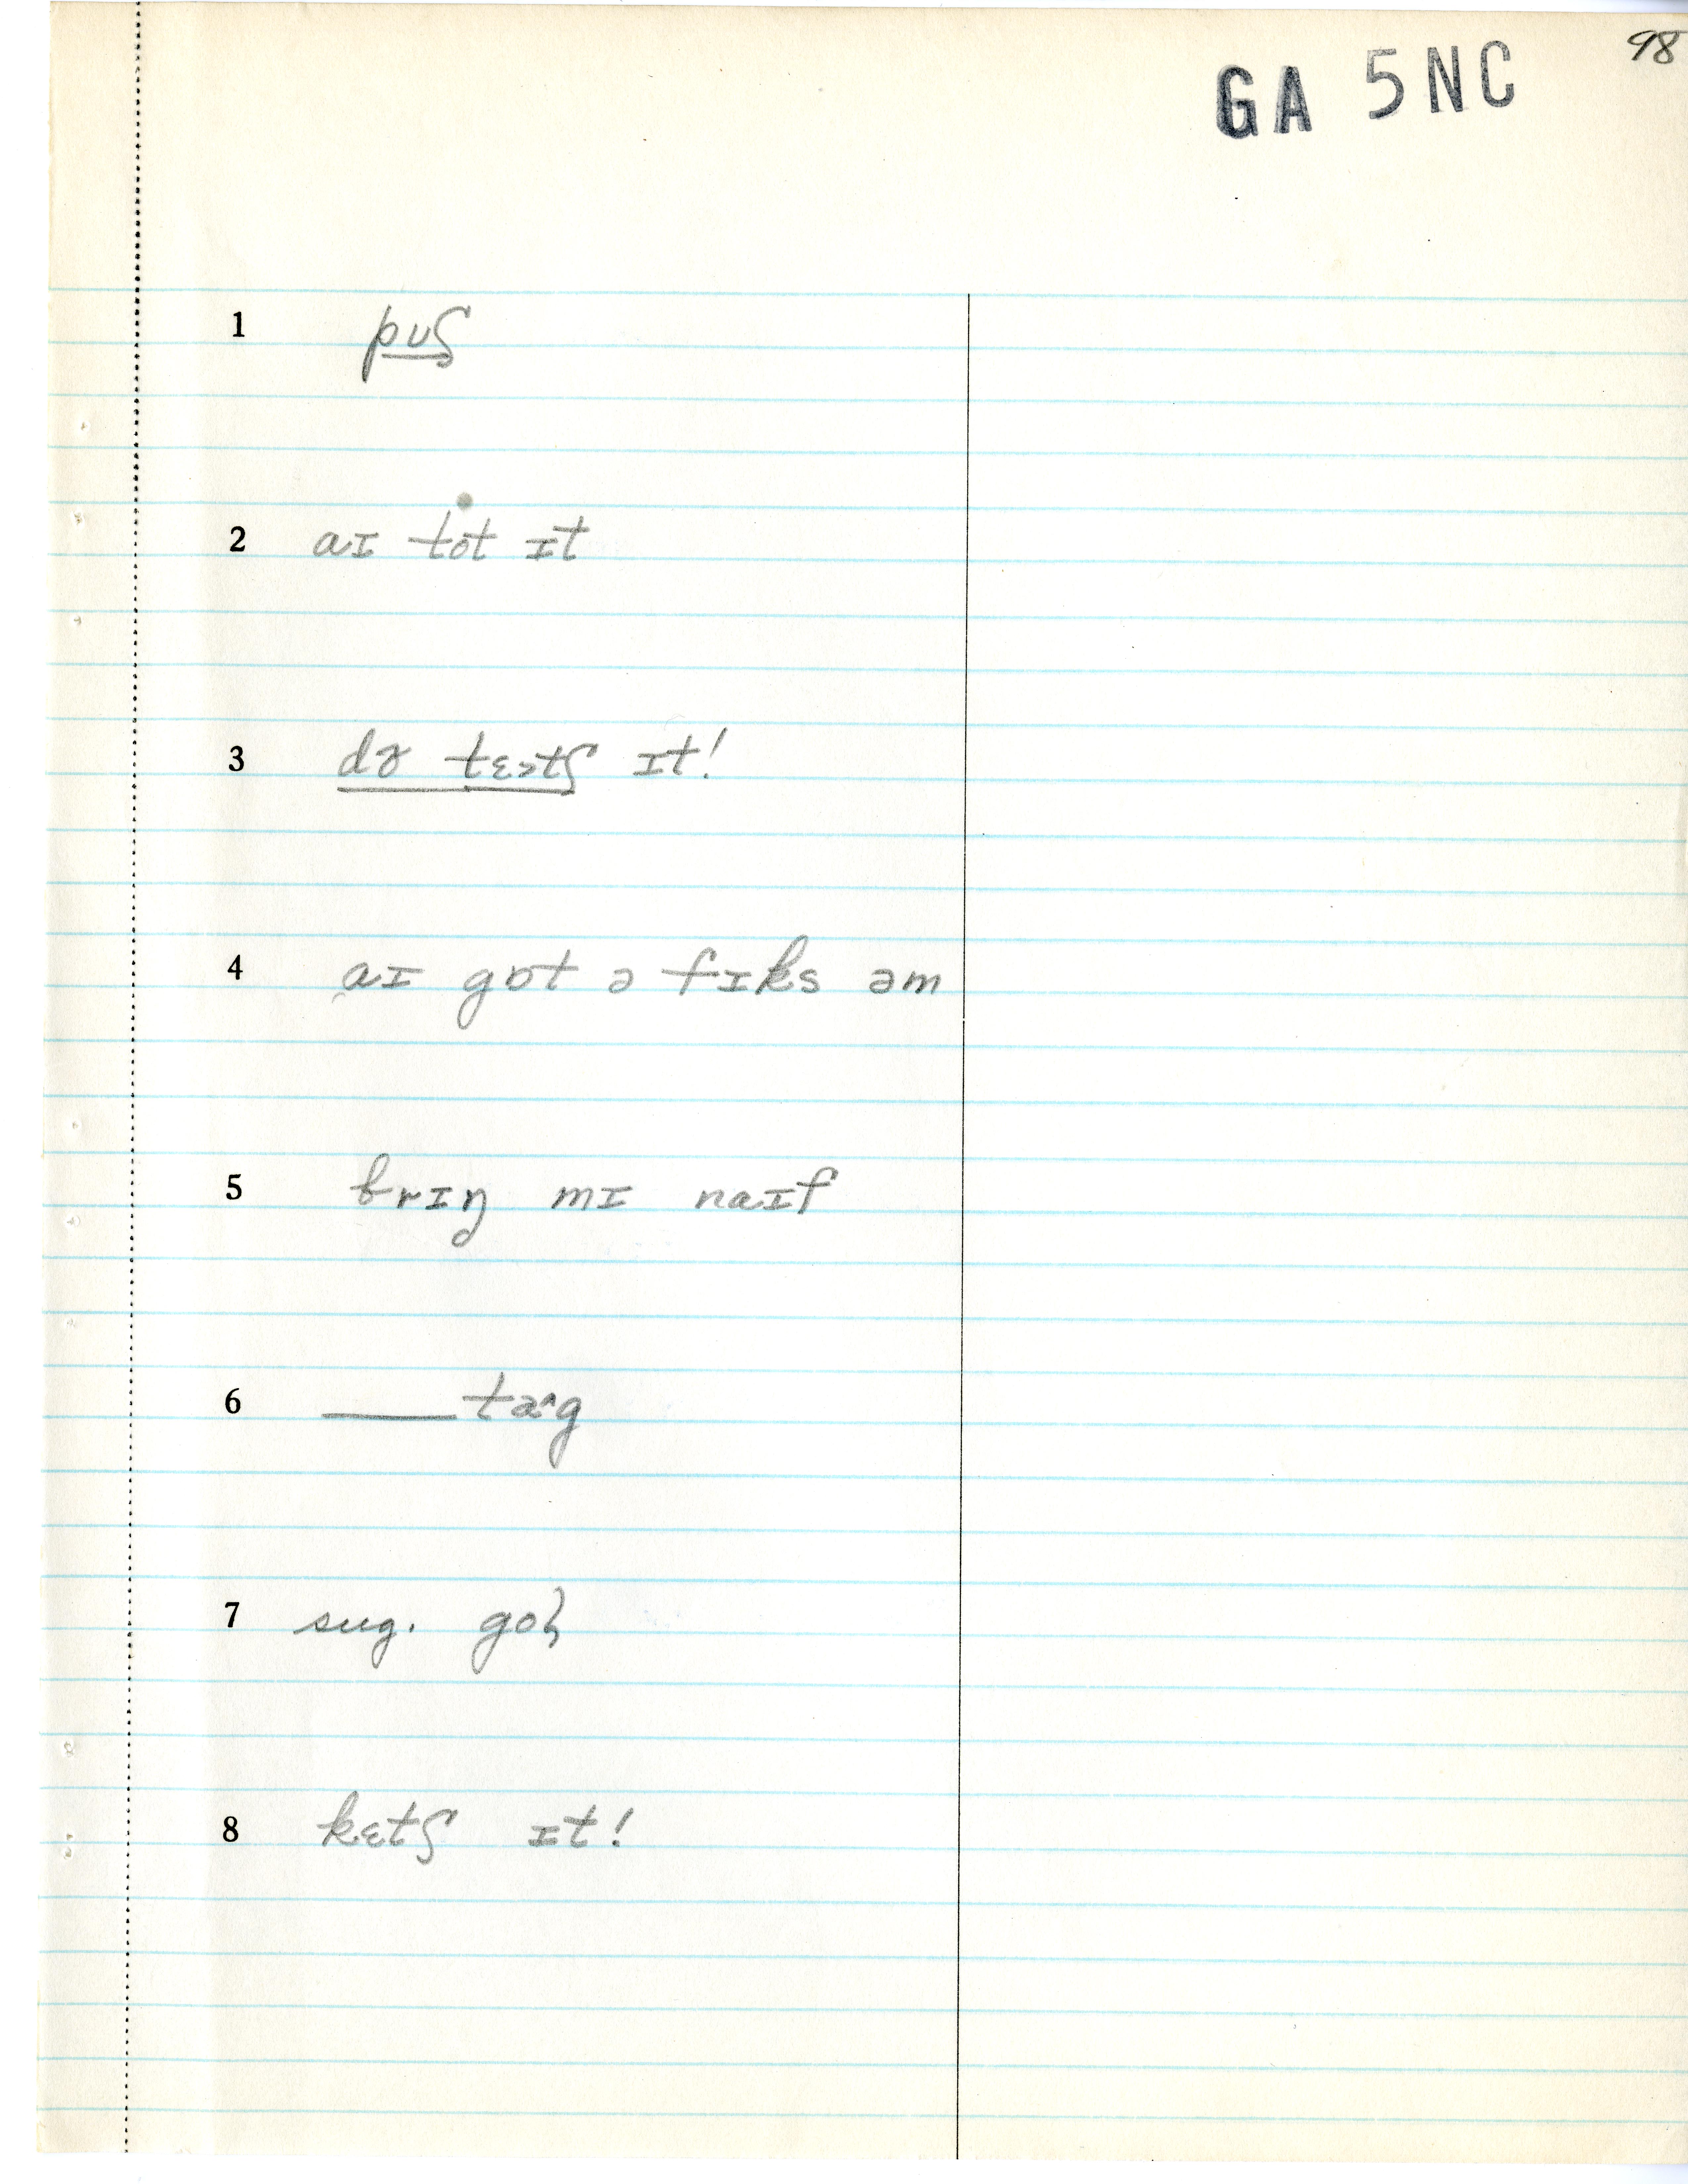 98
GA 5NC
1 pʊʃ
2 aɪ tot ɪt
3 tɛ>tʃ ɪt!
4 aɪ gɒt ə fɪks əm
5 brɪŋ mɪ naɪf
6 ____ta^g
7 sug.
8 kɛtʃ ɪt!